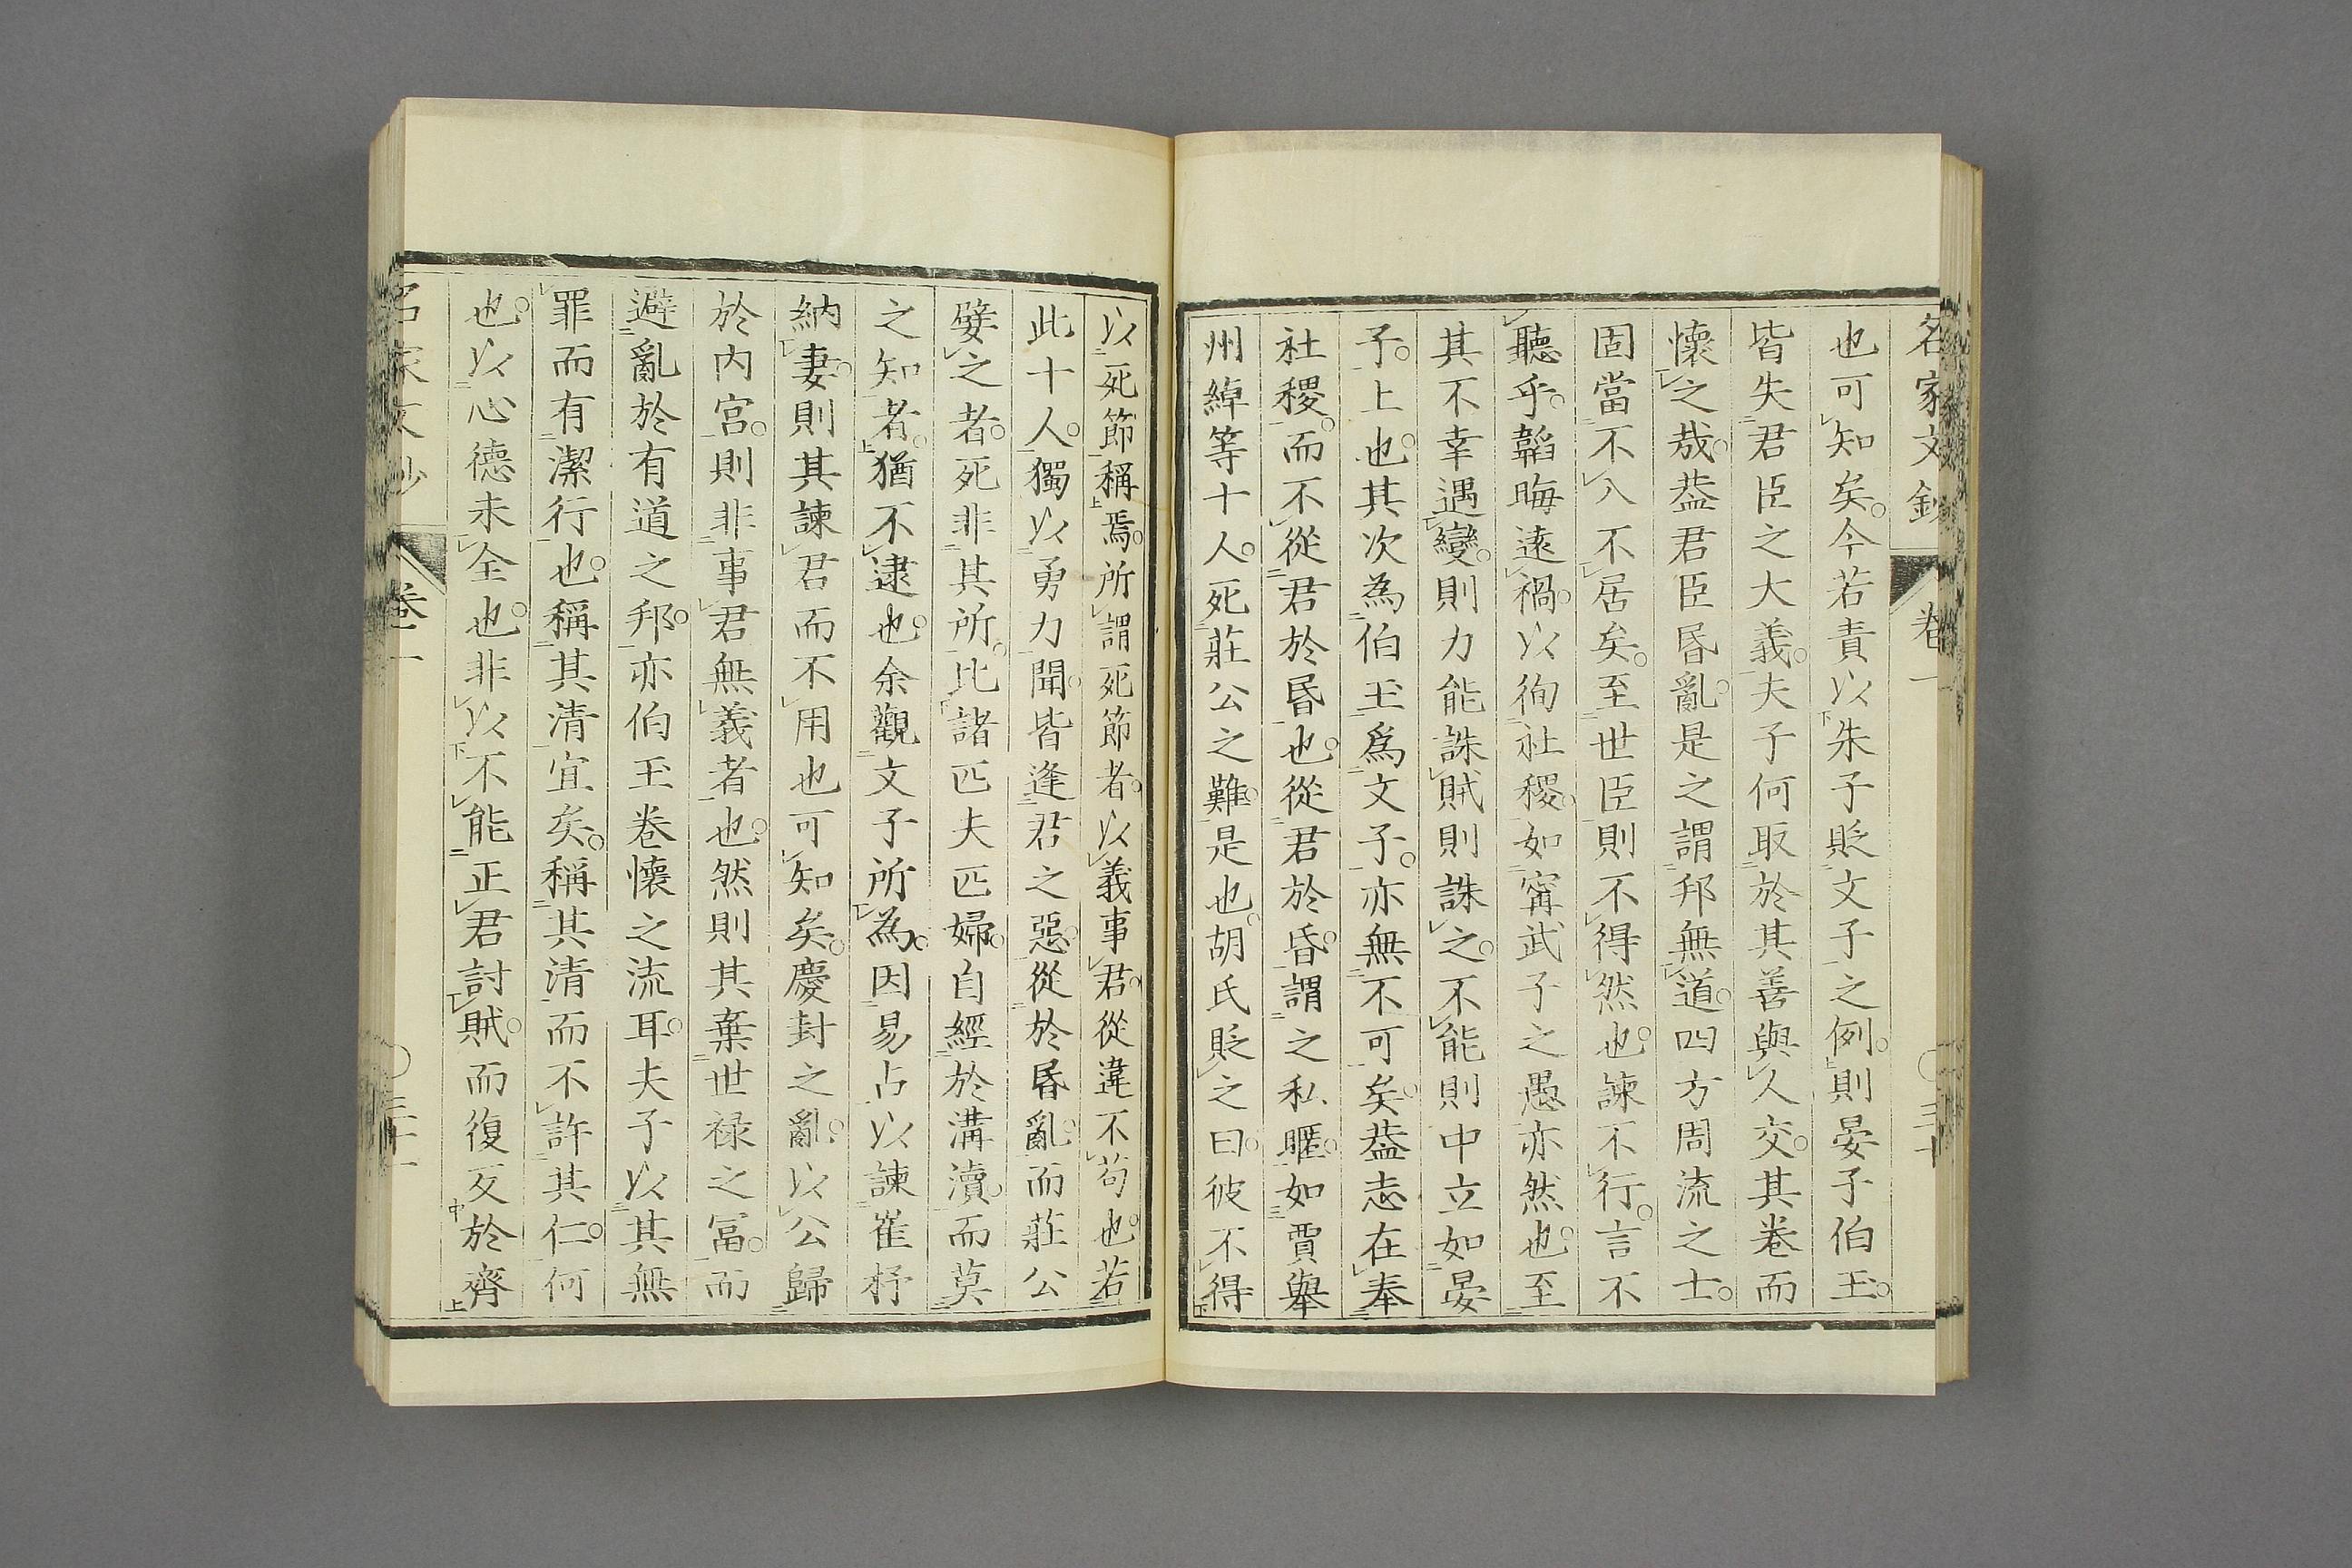 名家文鈔 卷一 〇三十
也可知矣。今若責以朱子貶文子之例。則晏子伯玉。
皆失君臣之大義。夫子何取於其善與人交。其卷而
懷之哉。葢君臣昏亂。是之謂邦無道。四方周流之士。
固當不入不居矣。至世臣則不得然也。諫不行。言不
聽乎。韜晦遠禍。以徇社稷。如甯武子之愚亦然也。至
其不幸遇變。則力能誅賊則誅之。不能則中立如晏
子。上也。其次為伯玉爲文子。亦無不可矣。葢志在奉
社稷。而不從君於昏也。從君於昏。謂之私暱。如賈舉
州綽等十人。死莊公之難。是也。胡氏貶之曰。彼不得
以死節稱焉。所謂死節者。以義事君。從違不苟也。若
此十人。獨以勇力聞。皆逢君之惡。從於昏亂。而莊公
嬖之者。死非其所。比諸匹夫匹婦。自經於溝瀆。而莫
之知者。猶不逮也。余觀文子所為。因易占以諫崔杼
納妻。則其諫君而不用也可知矣。慶封之亂。以公歸
於內宮。則非事君無義者也。然則其棄世祿之富。而
避亂於有道之邦。亦伯玉卷懷之流耳。夫子以其無
罪而有潔行也。稱其清宜矣。稱其清而不許其仁。何
也。以心德未全也。非以不能正君討賊。而復反於齊
名家文鈔 卷一 〇三十一